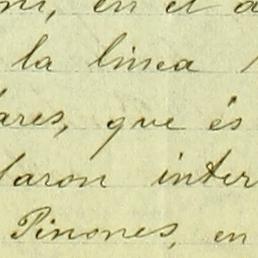 en el
la linea
ares, que és
laron inter
Pinones, en